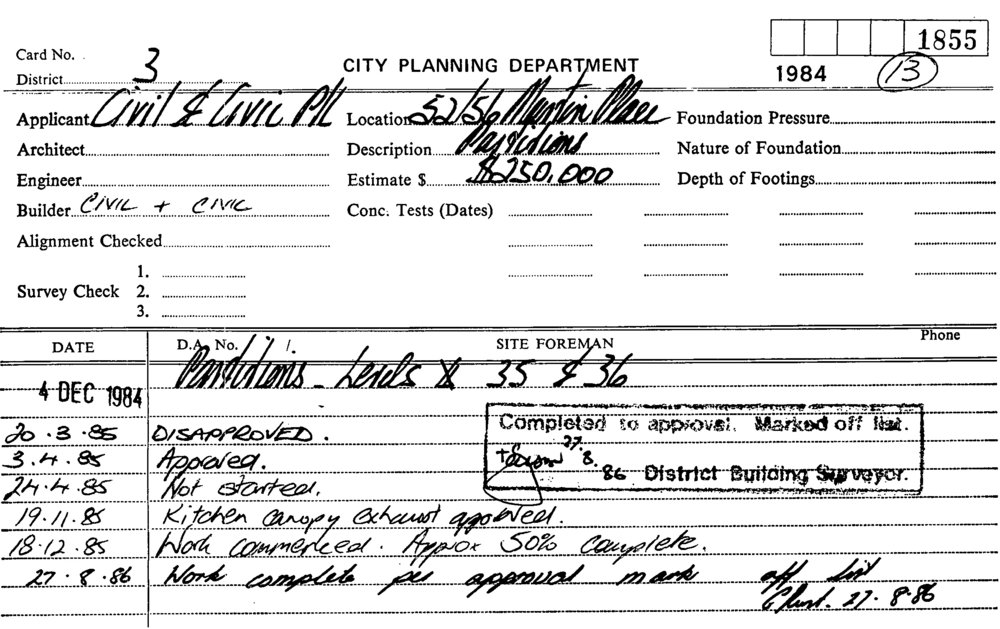 1855
Card No.
District 3
CITY PLANNING DEPARTMENT
1984 13
Applicant Civil & Civic P/L Location 52/56 Martin Place Foundation Pressure
Architect Description Partitions Nature of Foundation
Engineer Estimate $ $250,000 Depth of Footings
Builder CIVIL + CIVIC Conc. Tests (Dates)
Alignment Checked
1.
Survey Check 2.
3.
DATE D.A. No. /. SITE FOREMAN Phone
4 DEC 1984 Partitions - Levels 35 & 36
Completed to approval. Marked off list.
27.8.86 District Building Surveyor.
20.3.85 DISAPPROVED.
3.4.85 Approved.
24.4.85 Not started.
19.11.85 Kitchen canopy exhaust approved.
18.12.85 Work commenced. Approx 50% complete.
27.8.86 Work complete per approval mark off list
27.8.86